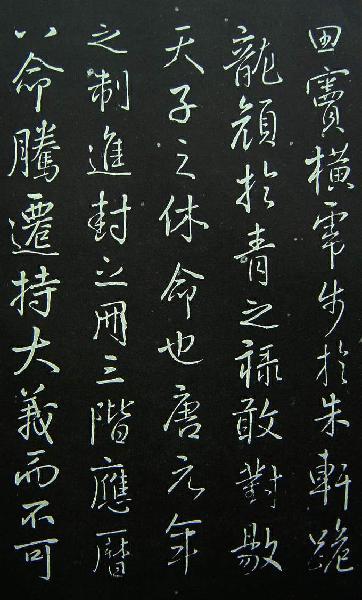 田竇橫虎步於朱軒跪
龍顏於青之祿敢對敭
天子之休命也唐元年
之制進封之冊三階應曆
八命騰遷持大義而不可